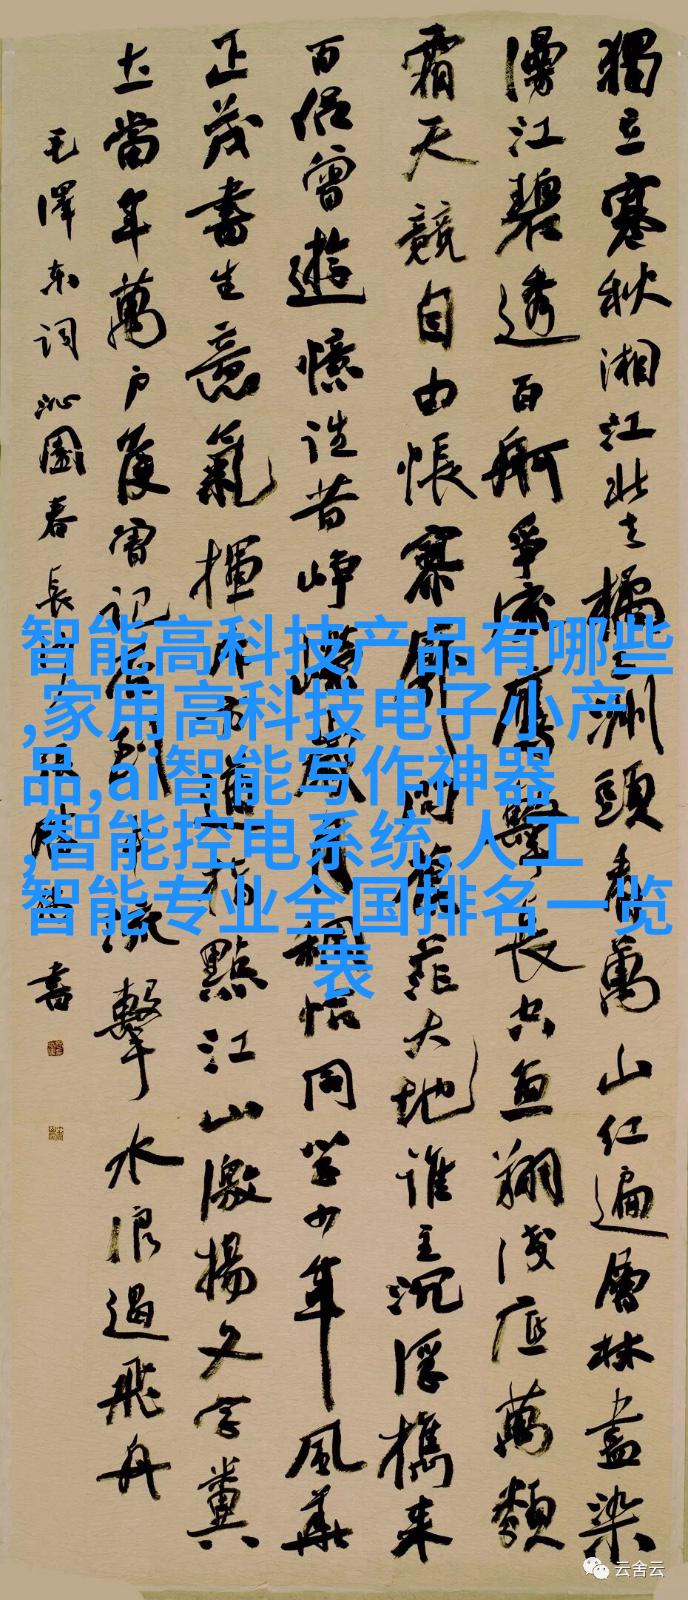 獨立寒秋湘江北去橘子洲頭看萬山紅遍層林盡染
漫江碧透百舸爭流鷹擊長空魚翔淺底萬類
霜天競自由悵寥廓問蒼茫大地誰主沉浮攜來
百侶曾遊憶往昔崢嶸歲月稠恰同學少年風華
正茂書生意氣揮斥方遒指點江山激揚文字糞
土當年萬戶侯曾記否到中流擊水浪遏飛舟
毛澤東詞沁園春長沙 書
智能高科技产品有哪些
,家用高科技电子小产
品,ai智能写作神器
,智能控电系统,人工
智能专业全国排名一览
表
云舍云